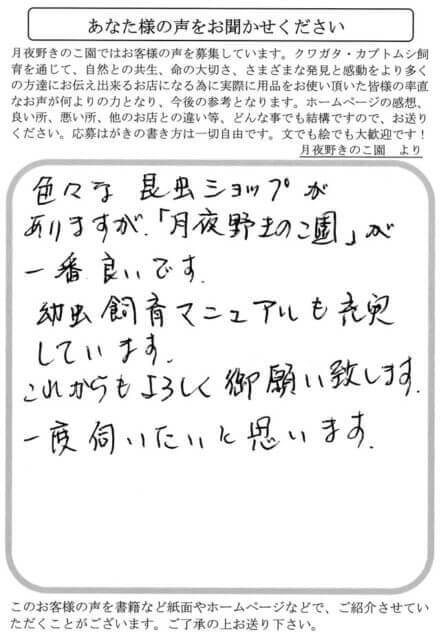 あなた様の声をお聞かせください
月夜野きのこ園ではお客様の声を募集しています。クワガタ・カブトムシ飼
育を通じて、自然との共生、命の大切さ、さまざまな発見と感動をより多く
の方達にお伝え出来るお店になる為に実際に用品をお使い頂いた皆様の率直
なお声が何よりの力となり、今後の参考となります。ホームページの感想、
良い所、悪い所、他のお店との違い等、どんな事でも結構ですので、お送り
ください。応募はがきの書き方は一切自由です。文でも絵でも大歓迎です！
月夜野きのこ園　より
色々な 昆虫ショップが
ありますが、「月夜野きのこ園」が
一番 良いです.
幼虫 飼育マニュアルも 充実
しています.
これからもよろしく 御願い致します.
一度 伺いたいと 思います.
このお客様の声を書籍など紙面やホームページなどで、ご紹介させていた
だくことがございます。ご了承の上お送り下さい。